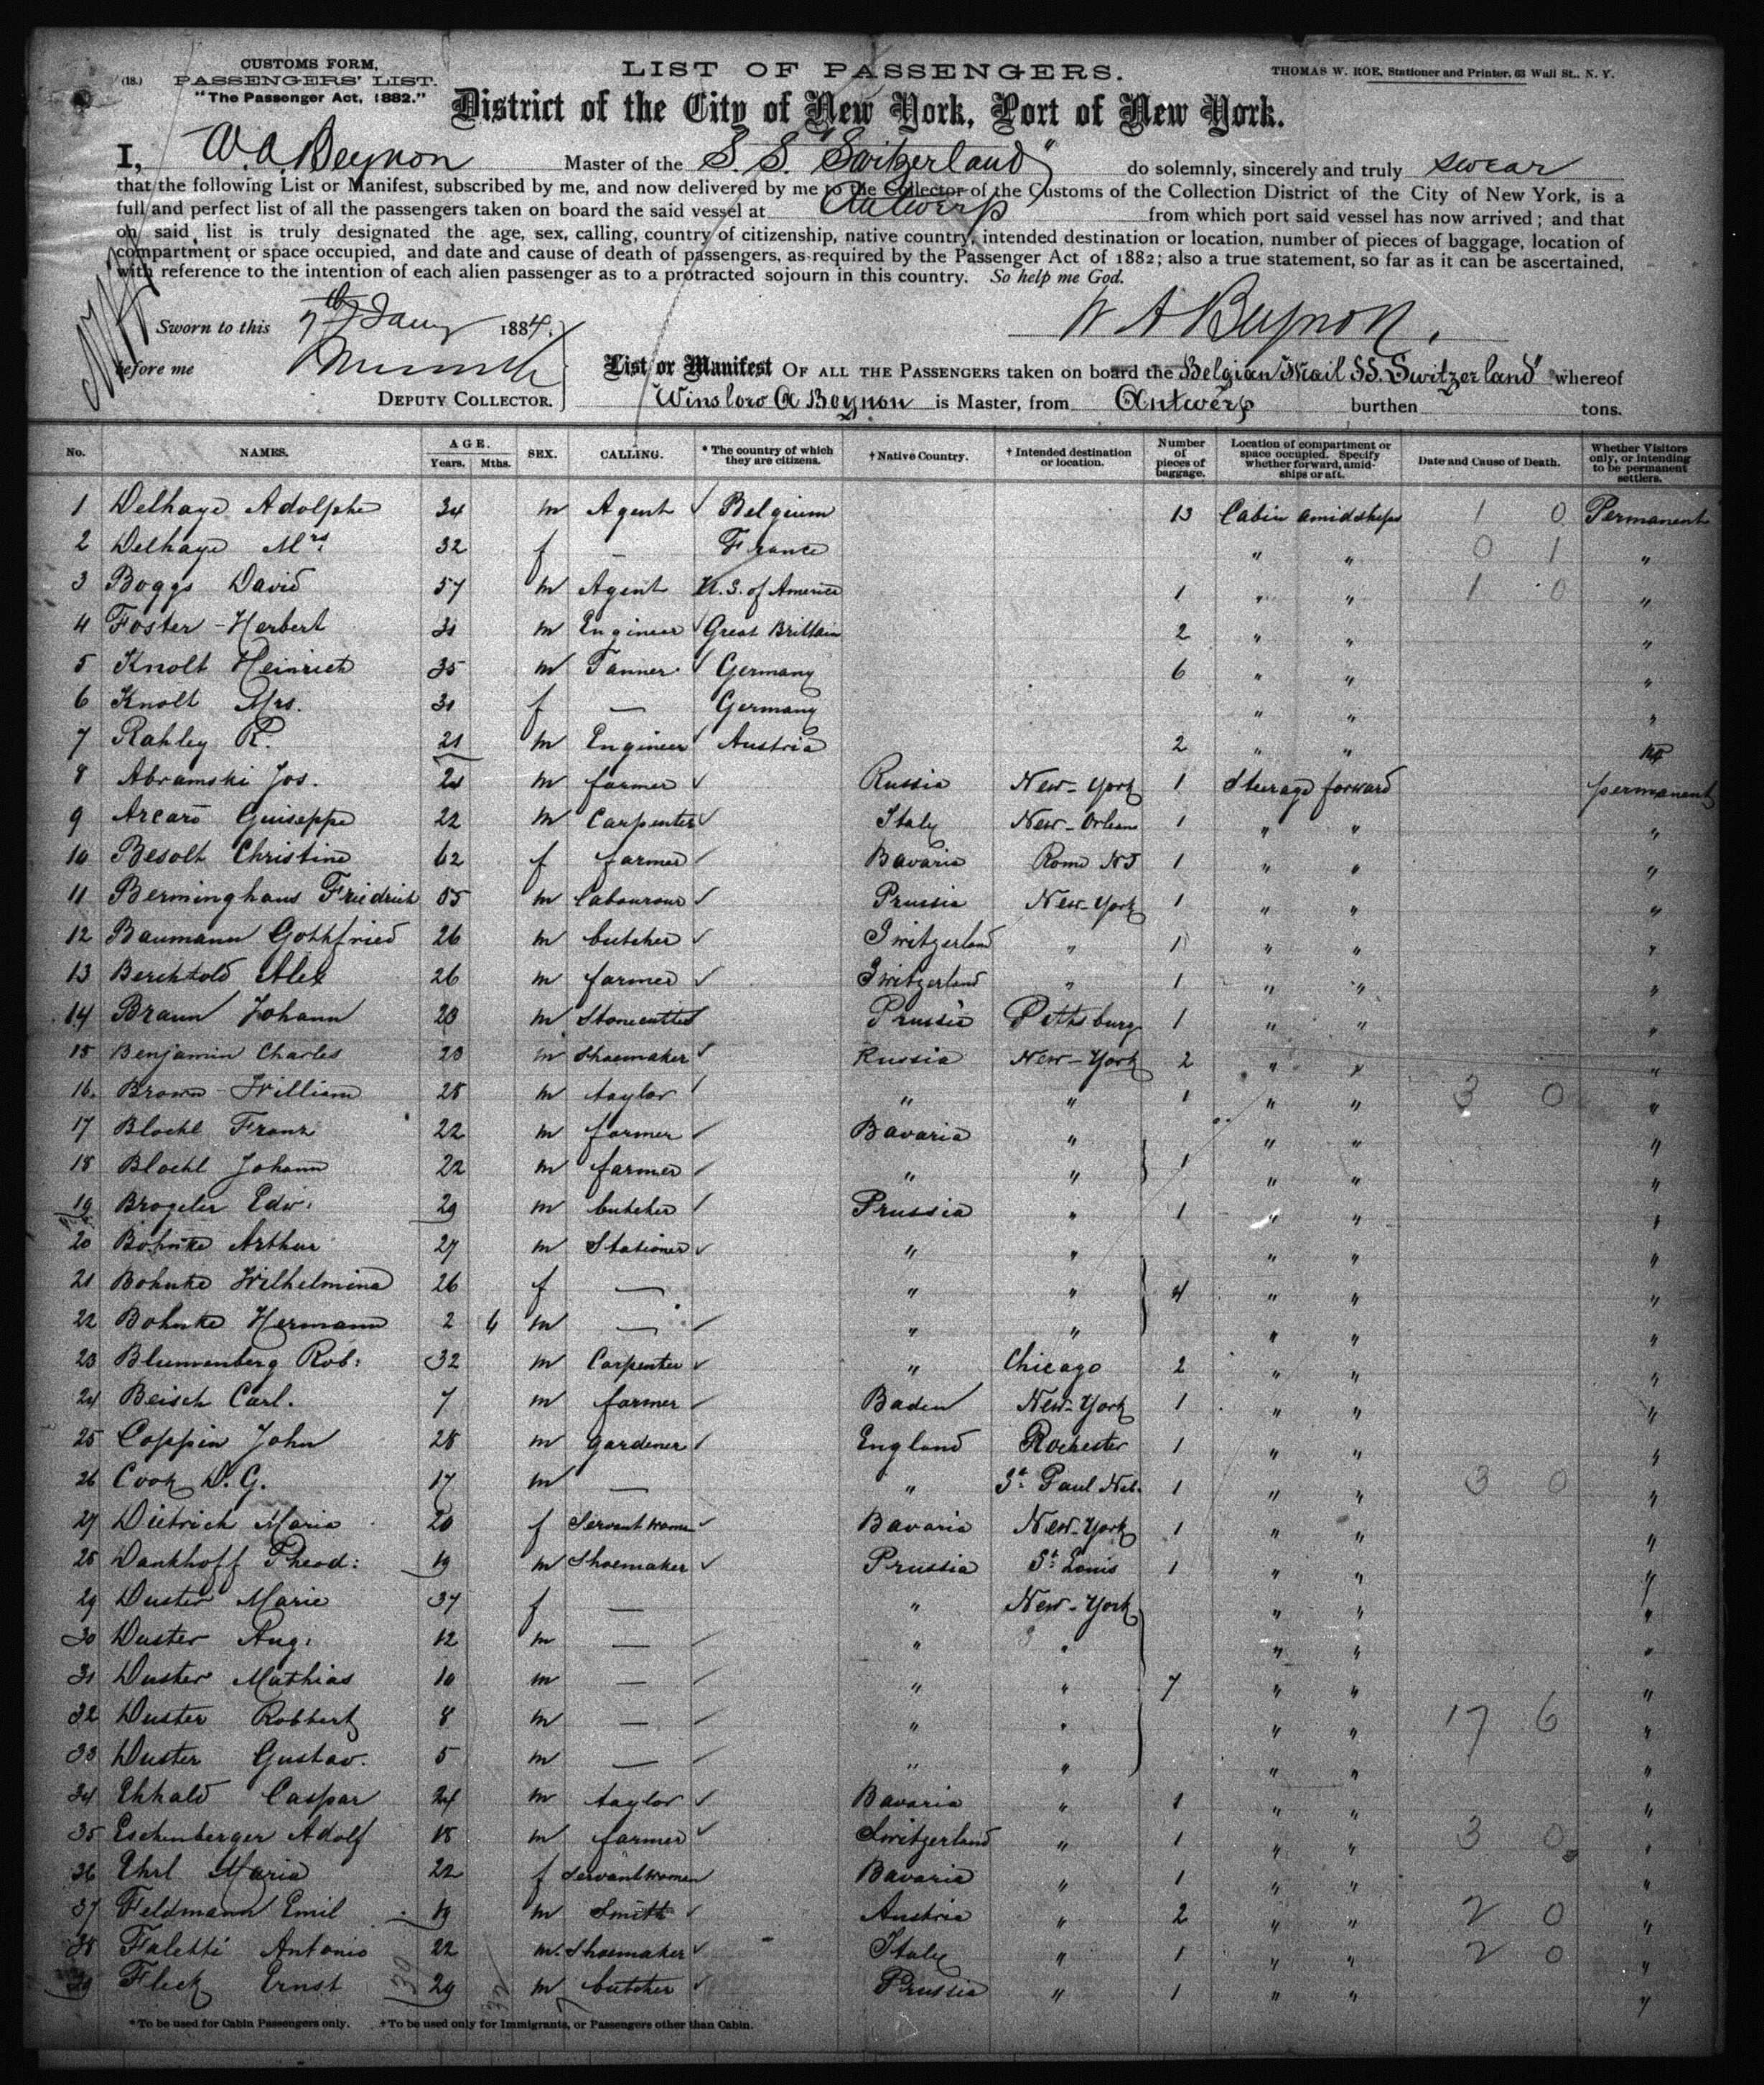 (18.)
CUSTOMS FORM,
PASSENGERS' LIST.
"The Passenger Act, 1882."
LIST OF PASSENGERS.
THOMAS W. ROE, Stationer and Printer, 63 Wall St., N. Y.
District of the City of New York, Port of New York.
I, W. A. Beynon Master of the S. S. "Switzerland" do solemnly, sincerely and truly swear
that the following List or Manifest, subscribed by me, and now delivered by me to the Collector of the Customs of the Collection District of the City of New York, is a
full and perfect list of all the passengers taken on board the said vessel at Antwerp from which port said vessel has now arrived; and that
on said list is truly designated the age, sex, calling, country of citizenship, native country, intended destination or location, number of pieces of baggage, location of
compartment or space occupied, and date and cause of death of passengers, as required by the Passenger Act of 1882; also a true statement, so far as it can be ascertained,
with reference to the intention of each alien passenger as to a protracted sojourn in this country. So help me God.
Sworn to this 7th Jany 1884. W A Beynon
before me
DEPUTY COLLECTOR.
List or Manifest OF ALL THE PASSENGERS taken on board the Belgian Mail SS. Switzerland" whereof
Winsloro A Beynon is Master, from Antwerp burthen tons.
No. NAMES. AGE. Years. Mths. SEX. CALLING. * The country of which they are citizens. † Native Country. † Intended destination or location. Number of pieces of baggage. Location of compartment or space occupied. Specify whether forward, amidships or aft. Date and Cause of Death. Whether Visitors only, or intending to be permanent settlers.
1 Delhaye Adolphe 34 m Agent ✓ Belgium 13 Cabin amidships 1 0 Permanent
2 Delhaye Mrs 32 f — France " " 0 1 "
3 Boggs David 57 m Agent U.S. of America 1 " " 1 0 "
4 Foster Herbert 31 m Engineer ✓ Great Brittain 2 " " "
5 Knolt Heinrich 35 m Tanner ✓ Germany 6 " " "
6 Knolt Mrs. 31 f — Germany " " "
7 Rahley R. 21 m Engineer ✓ Austria 2 " "
8 Abramski Jos. 21 m farmer ✓ Russia New-York 1 Steerage forward permanent
9 Arcaro Guiseppe 22 m Carpenter ✓ Italy New-Orleans 1 " " "
10 Besolt Christine 62 f farmer ✓ Bavaria Rome NY 1 " " "
11 Berminghaus Friedrich 55 m Labourour ✓ Prussia New-York 1 " " "
12 Baumann Gottfried 26 m butcher ✓ Switzerland " 1 " " "
13 Berchtold Alex 26 m farmer ✓ Switzerland " 1 " " "
14 Braun Johann 23 m Stonecutter ✓ Prussia Pittsburg 1 " " "
15 Benjamin Charles 23 m Shoemaker ✓ Russia New-York 2 " " "
16. Brown William 28 m taylor ✓ " " 1 " " 3 0 "
17 Blochl Franz 22 m farmer ✓ Bavaria " " " "
18 Blochl Johann 22 m farmer ✓ " " 1 " " "
19 Brogeler Edw. 29 m butcher ✓ Prussia " 1 " " "
20 Bohnke Arthur 27 m Stationer ✓ " " " " "
21 Bohnke Wilhelmina 26 f — " " 4 " " "
22 Bohnke Hermann 2 6 m — ✓ " " " " "
23 Blumenberg Rob: 32 m Carpenter ✓ " Chicago 2 " " "
24 Beisch Carl. 7 m farmer ✓ Baden New-York 1 " " "
25 Coppin John 28 m gardener ✓ England Rochester 1 " " "
26 Cook D. G. 17 m — " St. Paul Neb. 1 " " 3 0 "
27 Dietrich Maria 20 f Servant women ✓ Bavaria New-York 1 " " "
28 Dankhoff Theod: 19 m Shoemaker ✓ Prussia St. Louis 1 " " "
29 Duster Marie 37 f — " New-York " " "
30 Duster Aug. 12 m — ✓ " " " " "
31 Duster Mathias 10 m — ✓ " " 7 " " "
32 Duster Robbert 8 m — ✓ " " " " 17 6 "
33 Duster Gustav. 5 m — ✓ " " " " "
34 Ehhald Caspar 24 m taylor ✓ Bavaria " 1 " " "
35 Eschenberger Adolf 18 m farmer ✓ Switzerland " 1 " " 3 0 "
36 Ehrl Maria 22 f Servantwomen Bavaria " 1 " " "
37 Feldmann Emil 19 m Smith ✓ Austria " 2 " " 2 0 "
38 Faletti Antonio 22 m. Shoemaker ✓ Italy " 1 " " 2 0 "
39 Fleck Ernst 29 m butcher ✓ Prussia " 1 " " "
*To be used for Cabin Passengers only. †To be used only for Immigrants, or Passengers other than Cabin.